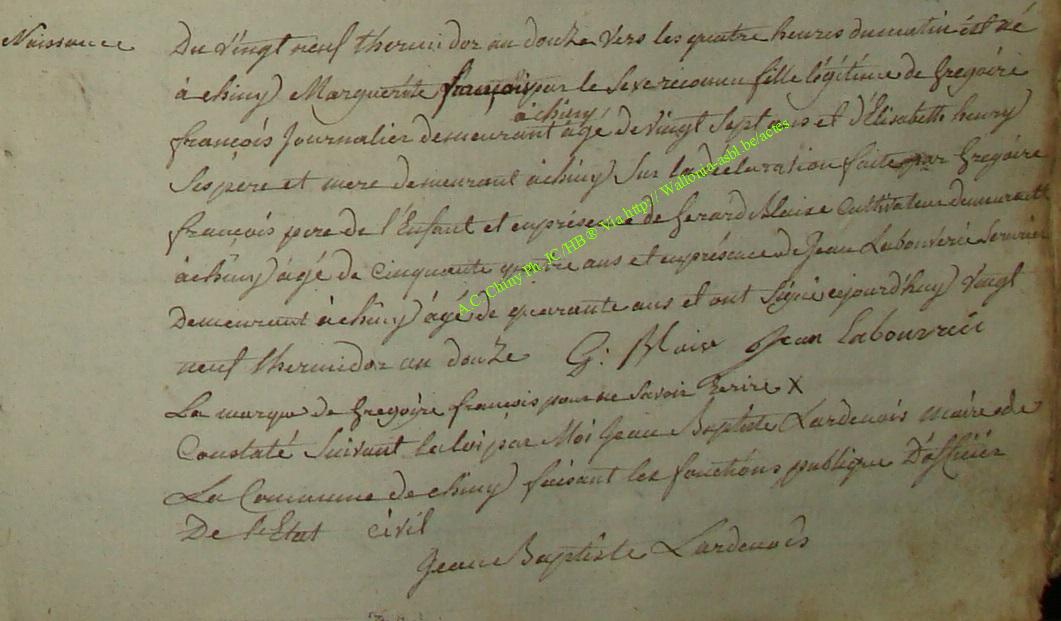 Naissance
Du vingt neuf thermidor an douze vers les quatre heures du matin est né
à chiny Marguerite françois par le sexe reconnu fille légitime de Gregoire
à chiny
françois Journalier demeurant âgé de vingt sept ans et d'Elisabette henry
Ses pere et mere demeurant à chiny Sur la déclaration faite par Gregoire
françois pere de l'Enfant et en présence de Gerard Blaise Cultivateur demeurant
à chiny âgé de cinquante quatre ans et en présence de Jean Labouverie
Demeurant à chiny âgé de quarante ans et ont Signé cejourd'huy vingt
neuf thermidor an douze G: Blaise Jean Labouverie
La marque de Gregoire françois pour ne savoir Ecrire X
Constaté Suivant la loi par Moi Jean Baptiste Lardenois maire de
La Commune de chiny faisant les fonctions publique D'officier
De l'Etat civil
Jean Baptiste Lardenois
A.C. Chiny Ph. JC /HB ® Via http:// Wallonia-asbl.be/actes